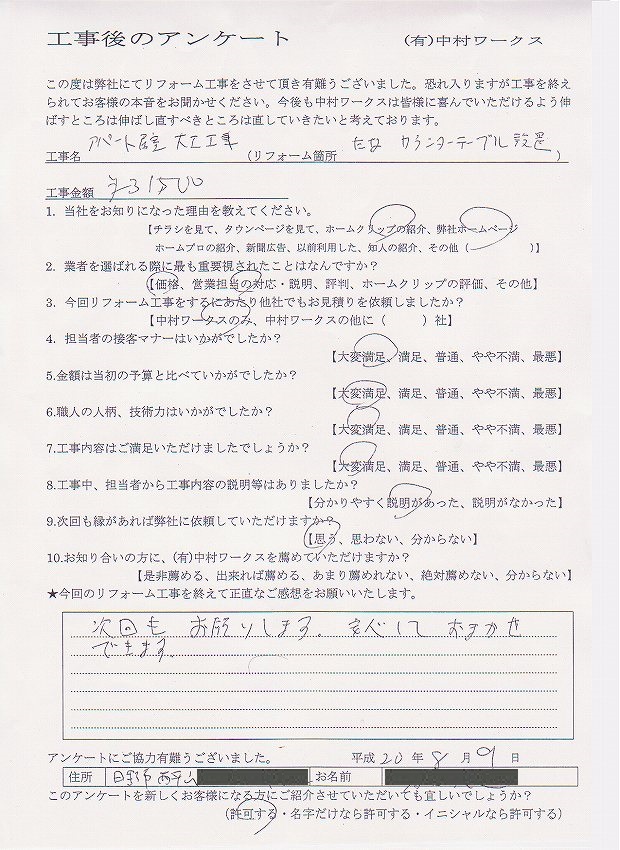 工事後のアンケート (有)中村ワークス
この度は弊社にてリフォーム工事をさせて頂き有難うございました。恐れ入りますが工事を終え
られてお客様の本音をお聞かせください。今後も中村ワークスは皆様に喜んでいただけるよう伸
ばすところは伸ばし直すべきところは直していきたいと考えております。
工事名 アパート居室 大工工事 (リフォーム箇所 カウンターテーブル設置 )
工事金額 ¥31500
1. 当社をお知りになった理由を教えてください。
【チラシを見て、タウンページを見て、ホームクリップの紹介、弊社ホームページ
ホームプロの紹介、新聞広告、以前利用した、知人の紹介、その他（ )】
2. 業者を選ばれる際に最も重要視されたことはなんですか？
【価格、営業担当の対応・説明、評判、ホームクリップの評価、その他】
3. 今回リフォーム工事をするにあたり他社でもお見積りを依頼しましたか？
【中村ワークスのみ、中村ワークスの他に（ ）社】
4. 担当者の接客マナーはいかがでしたか？
【大変満足、満足、普通、やや不満、最悪】
5.金額は当初の予算と比べていかがでしたか？
【大変満足、満足、普通、やや不満、最悪】
6.職人の人柄、技術力はいかがでしたか？
【大変満足、満足、普通、やや不満、最悪】
7.工事内容はご満足いただけましたでしょうか？
【大変満足、満足、普通、やや不満、最悪】
8.工事中、担当者から工事内容の説明等はありましたか？
【分かりやすく説明があった、説明がなかった】
9.次回も縁があれば弊社に依頼していただけますか？
【思う、思わない、分からない】
10.お知り合いの方に、(有)中村ワークスを薦めていただけますか？
【是非薦める、出来れば薦める、あまり薦めれない、絶対薦めない、分からない】
★今回のリフォーム工事を終えて正直なご感想をお願いいたします。
次回も お願いします。安心して おまかせ
できます。
アンケートにご協力有難うございました。 平成 20 年 8 月 9 日
住所 日野市西平山 お名前
このアンケートを新しくお客様になる方にご紹介させていただいても宜しいでしょうか？
(許可する・名字だけなら許可する・イニシャルなら許可する)